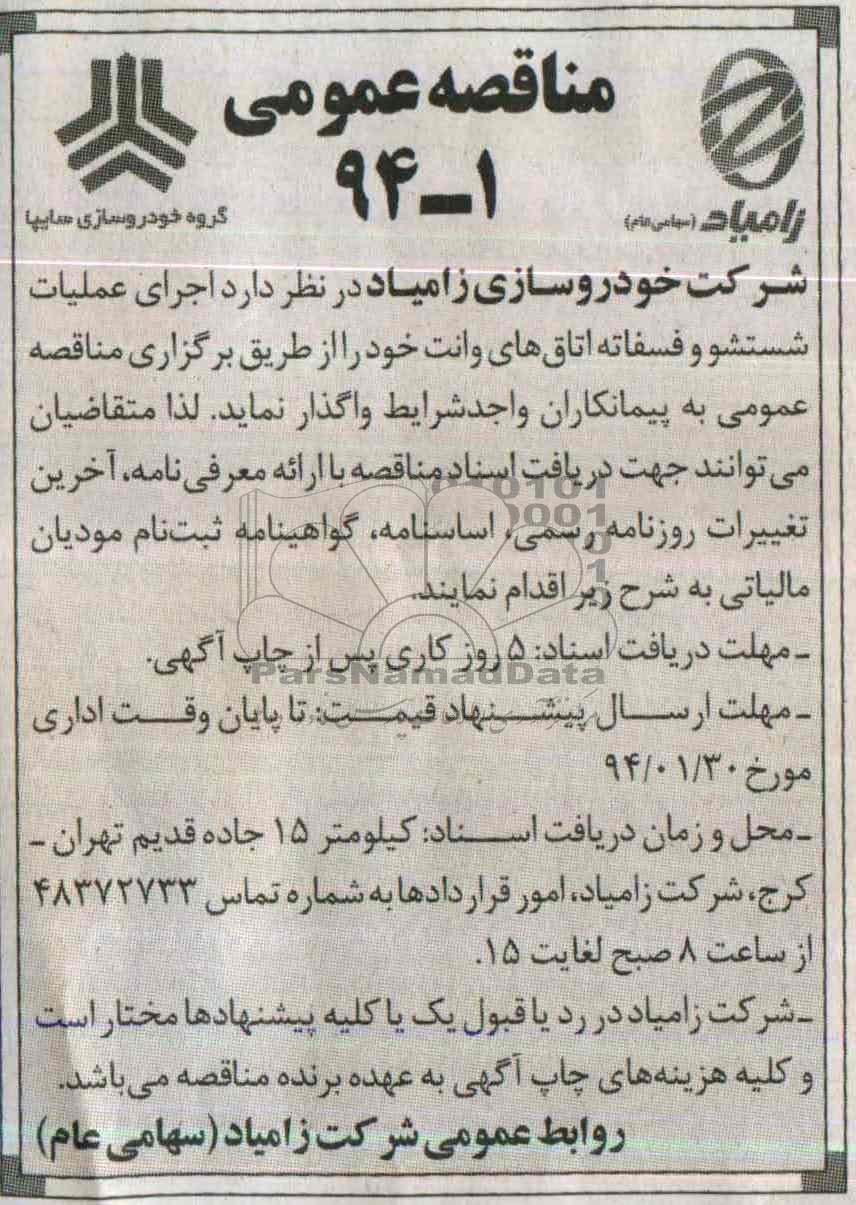 مناقصه عمومی
۹۴-۱
گروه خودروسازی سایپا
زامیاد (سهامی عام)
شرکت خودروسازی زامیاد در نظر دارد اجرای عملیات
شستشو و فسفاته اتاق‌های وانت خود را از طریق برگزاری مناقصه
عمومی به پیمانکاران واجدشرایط واگذار نماید. لذا متقاضیان
می‌توانند جهت دریافت اسناد مناقصه با ارائه معرفی نامه، آخرین
تغییرات روزنامه رسمی، اساسنامه، گواهینامه ثبت‌نام مودیان
مالیاتی به شرح زیر اقدام نمایند.
- مهلت دریافت اسناد: ۵ روز کاری پس از چاپ آگهی.
ParsNamadData
- مهلت ارسال پیشنهاد قیمت: تا پایان وقت اداری
مورخ ۹۴/۰۱/۳۰
- محل و زمان دریافت اسناد: کیلومتر ۱۵ جاده قدیم تهران -
کرج، شرکت زامیاد، امور قراردادها به شماره تماس ۴۸۳۷۲۷۳۳
از ساعت ۸ صبح لغایت ۱۵.
- شرکت زامیاد در رد یا قبول یک یا کلیه پیشنهادها مختار است
و کلیه هزینه‌های چاپ آگهی به عهده برنده مناقصه می‌باشد.
روابط عمومی شرکت زامیاد (سهامی عام)